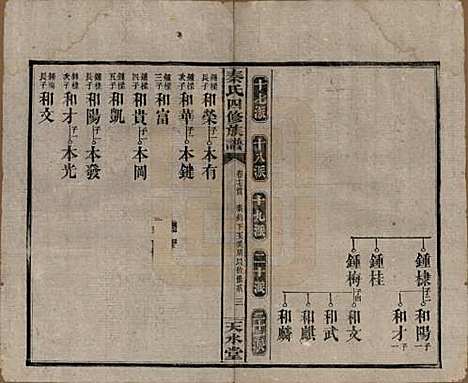 十七派
十八派
十九派
二十派
鍾棣子二
和陽子一
和才子一
鍾桂
鍾梅子四
和文
和武
和麒
和麟
秦氏四修族譜
卷七
三
天水堂
和榮子一
木有
鍾樑次子
和華子一
木鍵
鍾樑三子
和富
鍾樑四子
和貴子一
木岡
鍾樑五子
和凱
鍾棣長子
和陽子一
木發
鍾棣次子
和才子一
木光
鍾梅長子
和文